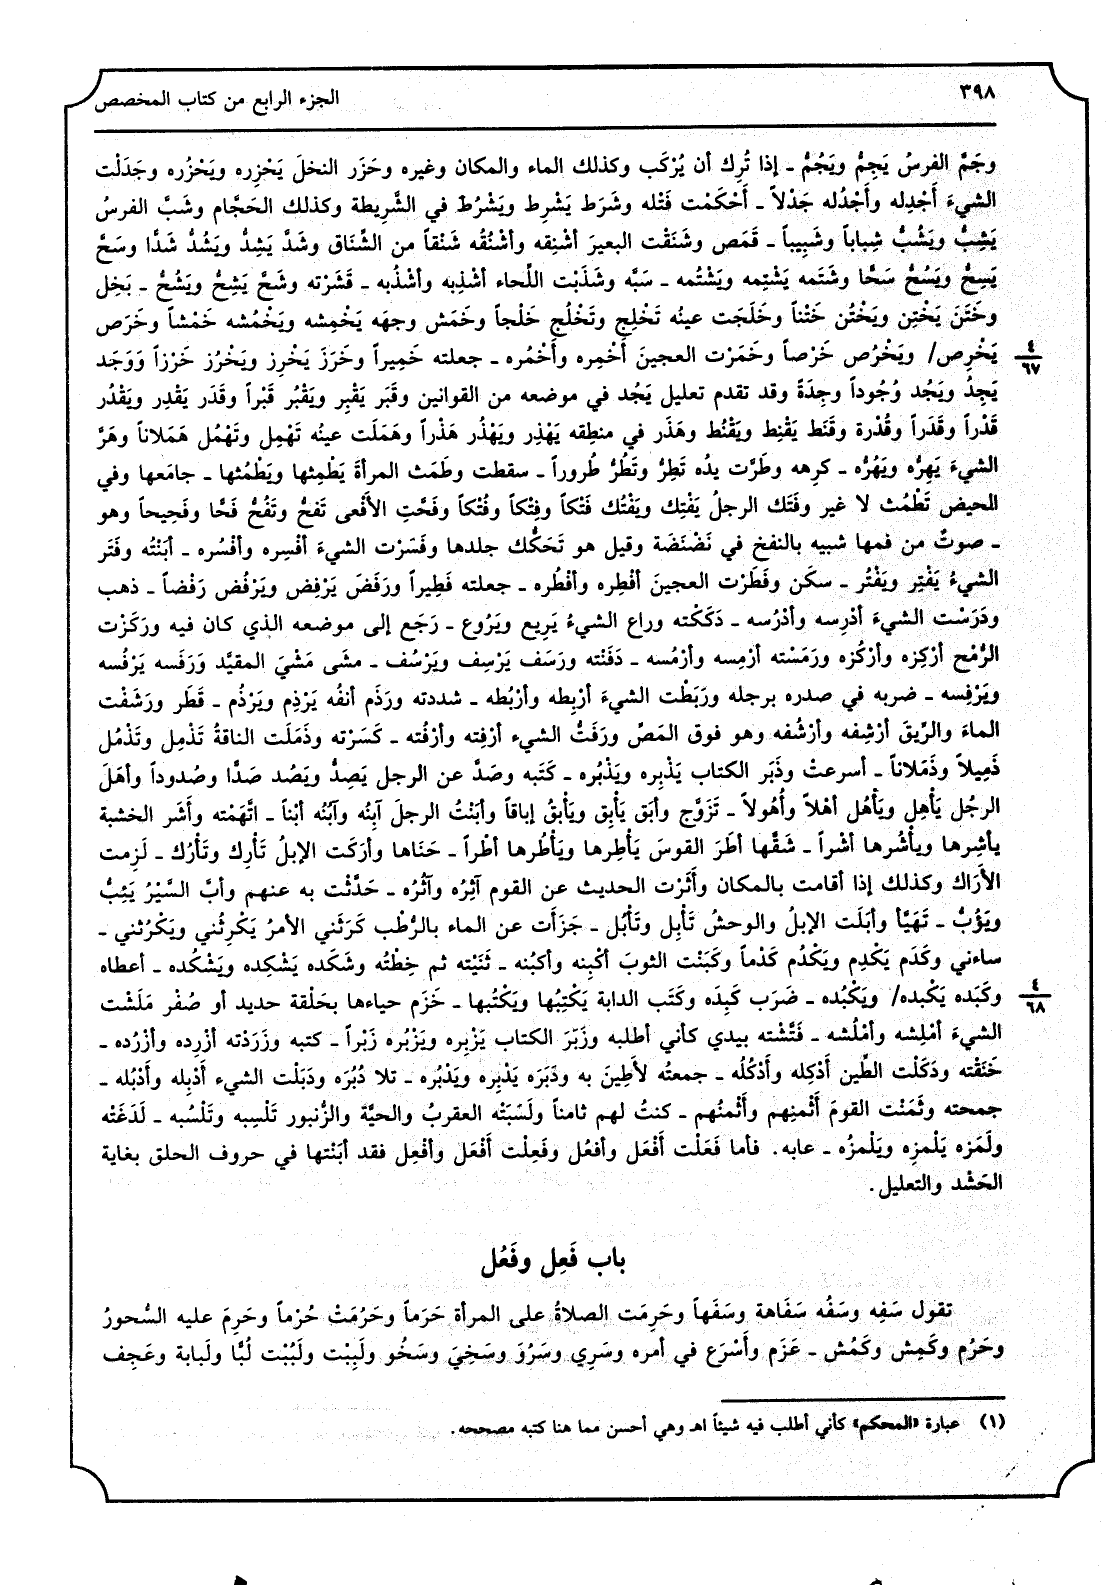 ٣٩٨
الجزء الرابع من كتاب المخصص
وجَمَّ الفرسُ يَجِمُّ ويَجُمُّ ـ إذا تُرِك أن يُرْكَب وكذلك الماء والمكان وغيره وحَزَر النخلَ يَحْزِره ويَحْزُره وجَدَلْت
الشيءَ أَجْدِله وأَجْدُله جَدْلاً ـ أَحْكَمْت فَتْله وشَرَط يَشْرِط ويَشْرُطُ في الشَّرِيطة وكذلك الحَجَّام وشَبَّ الفرسُ
يَشِبُّ ويَشُبُّ شِباباً وشَبِيباً ـ قَمَص وشَنَقْت البعيرَ أشْنِقه وأشْنُقُه شَنْقاً من الشِّنَاق وشَدَّ يَشِدُّ ويَشُدُّ شَدًّا وسَحَّ
يَسِحُّ ويَسُحُّ سَحًّا وشَتَمه يَشْتِمه ويَشْتُمه ـ سَبَّه وشَذَبْت اللِّحاء أشْذِبه وأشْذُبه ـ قَشَرْته وشَحَّ يَشِحُّ ويَشُحُّ ـ بَخِل
وخَتَنَ يَخْتِن ويَخْتُن خَتْناً وخَلَجَت عينُه تَخْلِج وتَخْلُج خَلْجاً وخَمَش وجهَه يَخْمِشه ويَخْمُشه خَمْشاً وخَرَص
يَخْرِص/ ويَخْرُص خَرْصاً وخَمَرْت العجينَ أَخْمِره وأَخْمُره ـ جعلته خَمِيراً وخَرَزَ يَخْرِز ويَخْرُز خَرْزاً وَوَجَد
٤
٦٧
يَجِدُ ويَجُد وُجُوداً وجِدَةً وقد تقدم تعليل يَجُد في موضعه من القوانين وقَبَر يَقْبِر ويَقْبُر قَبْراً وقَدَر يَقْدِر ويَقْدُر
قَدْراً وقَدَراً وقُدْرة وقَنَط يَقْنِط ويَقْنُط وهَذَر في منطِقه يَهْذِر ويَهْذُر هَذْراً وهَمَلَت عينُه تَهْمِل وتَهْمُل هَمَلاناً وهَرَّ
الشيءَ يَهِرُّه ويَهُرُّه ـ كرِهه وطَرَّت يدُه تَطِرُّ وتَطُرُّ طُروراً ـ سقطت وطَمَث المرأةَ يَطْمِثها ويَطْمُثها ـ جامَعها وفي
الحيض تَطْمُث لا غير وفَتَك الرجلُ يَفْتِك ويَفْتُك فَتْكاً وفِتْكاً وفُتْكاً وفَحَّتِ الأفْعى تَفحُّ وتَفُحُّ فَحًّا وفَحِيحاً وهو
ـ صوتٌ من فمها شبيه بالنفخ في نَضْنَضَة وقيل هو تَحَكُّك جلدها وفَسَرْت الشيءَ أفْسِره وأفْسُره ـ أبَنْتُه وفَتَر
الشيءُ يَفْتِر ويَفْتُر ـ سكَن وفَطَرْت العجينَ أفْطِره وأفْطُره ـ جعلته فَطِيراً ورَفَضَ يَرْفِض ويَرْفُض رَفْضاً ـ ذهب
ودَرَسْت الشيءَ أدْرِسه وأدْرُسه ـ دَكَكْته وراع الشيءُ يَرِيع ويَرُوع ـ رَجَع إلى موضعه الذي كان فيه ورَكَزْت
الرُّمْح أرْكِزه وأرْكُزه ورَمَسْته أرْمِسه وأرْمُسه ـ دَفَنْته ورَسَف يَرْسِف ويَرْسُف ـ مشَى مَشْيَ المقيَّد وَرَفَسه يَرْفُسه
ويَرْفِسه ـ ضربه في صدره برجله ورَبَطْت الشيءَ أرْبِطه وأرْبُطه ـ شددته ورَذَم أنفُه يَرْذِم ويَرْذُم ـ قَطَر ورشَفْت
الماءَ والرِّيقَ أرْشِفه وأرْشُفه وهو فوق المَصّ ورَفَتُّ الشيء أرْفِته وأرْفُته ـ كَسَرْته وذَمَلَت الناقةُ تَذْمِل وتَذْمُل
ذَمِيلاً وذَمَلاناً ـ أسرعتْ وذَبَر الكتاب يَذْبِره ويَذْبُره ـ كَتَبه وصَدَّ عن الرجل يَصِدُّ ويَصُد صَدًّا وصُدوداً وأهَلَ
الرجُل يَأْهِل ويَأْهُل أهْلاً وأُهُولاً ـ تَزَوَّج وأبَق يَأْبِق ويَأْبقُ إباقاً وأبَنْتُ الرجلَ آبِنُه وآبُنُه أبْناً ـ اتَّهَمْته وأشَر الخشبة
يأشِرها ويأْشُرها أشْراً ـ شَقَّها أطَرَ القوسَ يَأْطِرها ويَأْطُرها أطْراً ـ حَنَاها وأرَكَت الإبلُ تَأْرِك وتَأْرُك ـ لَزِمت
الأرَاك وكذلك إذا أقامت بالمكان وأَثَرْت الحديث عن القوم آثِرُه وآثُرُه ـ حَدَّثْت به عنهم وأبَّ السَّيْرُ يَئِبُّ
ويَؤُبُّ ـ تَهَيَّأ وأبَلَت الإبلُ والوحشُ تَأْبِل وتَأْبُل ـ جَزَأَت عن الماء بالرُّطْب كَرَثَني الأمرُ يَكْرِثُني ويَكْرُثني ـ
ساءني وكَدَم يَكْدِم ويَكْدُم كَدْماً وكَبَنْت الثوبَ أكْبِنه وأكبُنه ـ ثَنَيْته ثم خِطْتُه وشَكَده يَشْكِده ويَشْكُده ـ أعطاه
وكَبَده يَكْبِده/ ويَكْبُده ـ ضَرَب كَبِدَه وكَتَب الدابة يَكْتِبُها ويَكْتُبها ـ خَزَم حياءها بحَلْقة حديد أو صُفْر مَلَشْت
٤
٦٨
الشيءَ أمْلِشه وأمْلُشه ـ فَتَّشْته بيدي كأني أطلبه وزَبَرَ الكتاب يَزْبِره ويَزْبُره زَبْراً ـ كتبه وزَرَدْته أزْرِده وأزْرُده ـ
خَنَقْته ودَكَلْت الطِّين أَدْكِله وأَدْكُلُه ـ جمعتُه لأَطِينَ به ودَبَرَه يَدْبِره ويَدْبُره ـ تلا دُبُرَه ودَبَلْت الشيء أدْبِله وأدْبُله ـ
جمحته وثَمَنْت القومَ أَثْمنِهم وأثْمنُهم ـ كنتُ لهم ثامناً ولَسَبَتْه العقربُ والحيَّة والزُّنبور تَلْسِبه وتَلْسُبه ـ لَدَغَتْه
ولَمَزه يَلْمزِه ويَلْمزُه ـ عابه. فأما فَعَلْت أَفْعَل وأفعُل وفَعِلْت أَفْعَل وأفْعِل فقد أبَنْتها في حروف الحلق بغاية
الحَشْد والتعليل.
باب فَعِل وفَعُل
تقول سَفِه وسَفُه سَفَاهة وسَفَهاً وحَرِمَت الصلاةُ على المرأة حَرَماً وحَرُمَتْ حُرْماً وحَرِمَ عليه السُّحورُ
وحَرُم وكَمِش وكَمُش ـ عَزَم وأَسْرَع في أمره وسَرِي وسَرُوَ وسَخِيَ وسَخُو ولَبِبْت ولَبُبْت لُبًّا ولَبابة وعَجِف
(١) عبارة «المحكم» كأني أطلب فيه شيئاً اهـ وهي أحسن مما هنا كتبه مصححه.